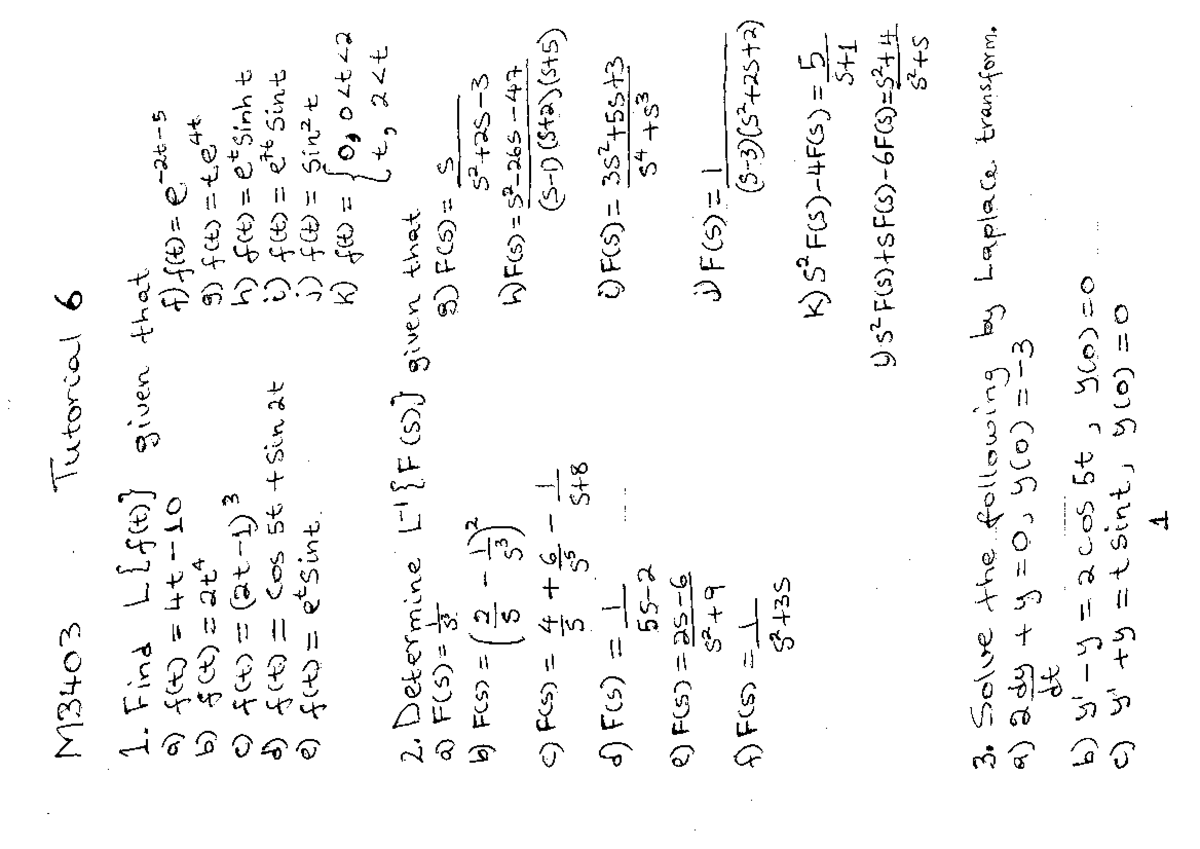 M3403 Tutorial 6
1. Find L{f(t)} given that
a) f(t) = 4t - 10
b) f(t) = 2t⁴
c) f(t) = (2t-1)³
d) f(t) = cos 5t + sin 2t
e) f(t) = eᵗ sint
f) f(t) = e^(-2t-5)
g) f(t) = te^(4t)
h) f(t) = eᵗ sinh t
i) f(t) = e^(7t) sint
j) f(t) = sin² t
k) f(t) = { 0, 0<t<2
t, 2<t
2. Determine L⁻¹{F(s)} given that
a) F(s) = 1/s³
b) F(s) = (2/s - 1/s³)²
c) F(s) = 4/s + 6/s⁵ - 1/(s+8)
d) F(s) = 1/(5s-2)
e) F(s) = (2s-6)/(s²+9)
f) F(s) = 1/(s²+3s)
g) F(s) = s/(s²+2s-3)
h) F(s) = (s²-26s-47)/((s-1)(s+2)(s+5))
i) F(s) = (3s²+5s+3)/(s⁴+s³)
j) F(s) = 1/((s-3)(s²+2s+2))
k) s²F(s)-4F(s) = 5/(s+1)
l) s²F(s)+sF(s)-6F(s) = (s²+4)/(s²+s)
3. Solve the following by Laplace transform.
a) 2 dy/dt + y = 0, y(0) = -3
b) y' - y = 2cos 5t, y(0) = 0
c) y' + y = t sint, y(0) = 0
1